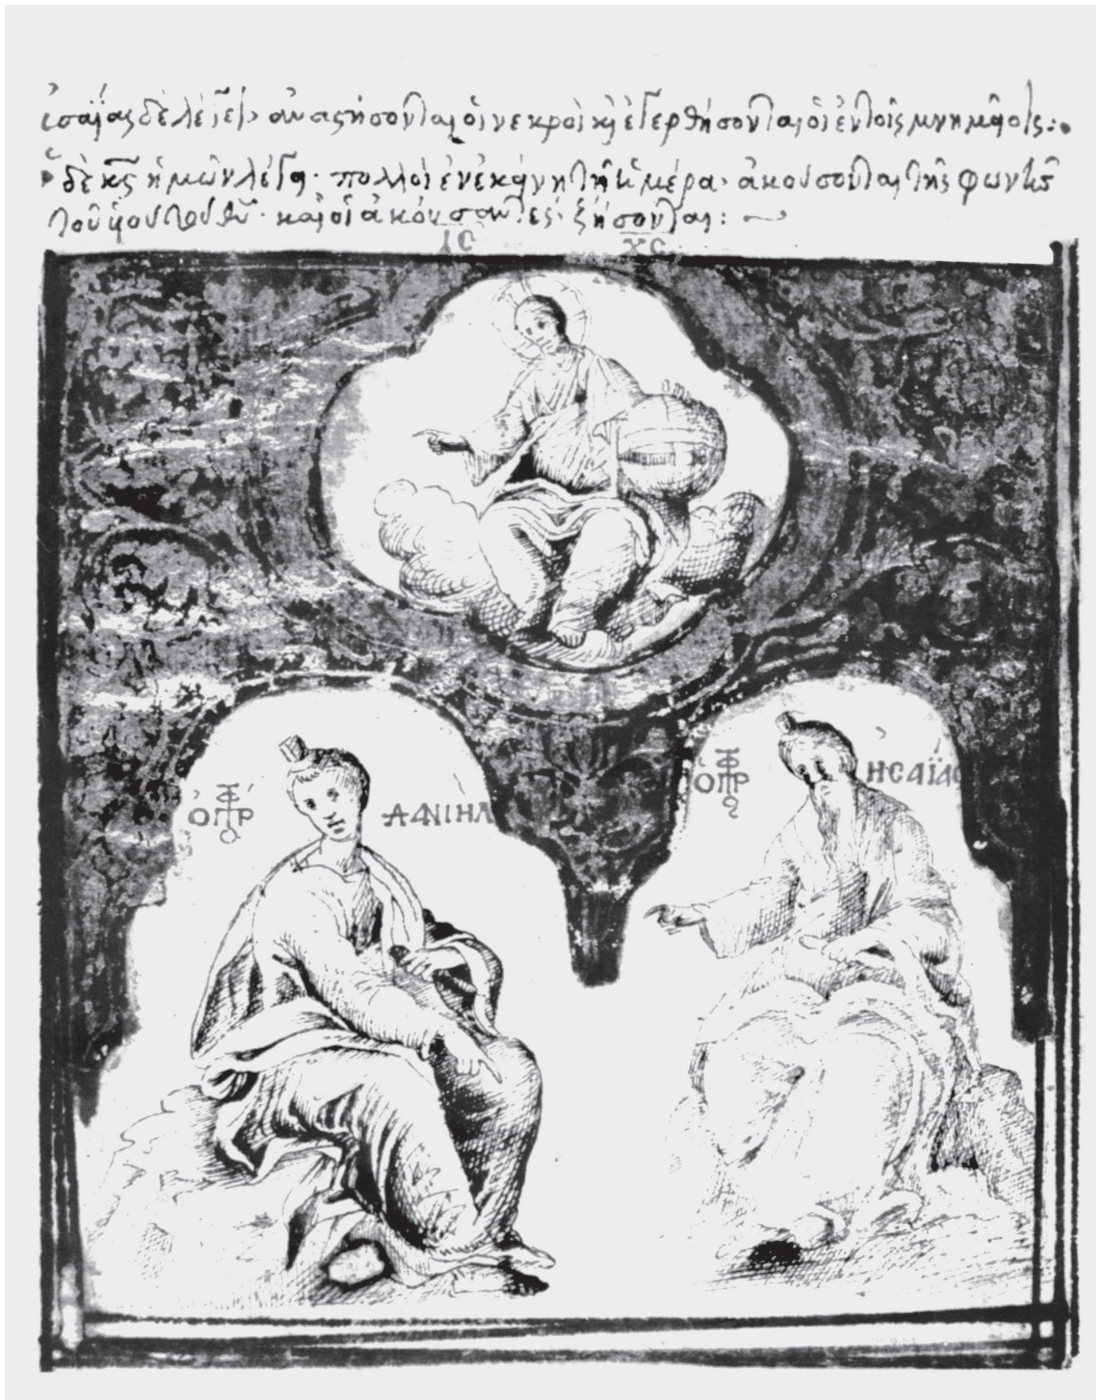 ἠσαΐας δὲ λέγει, ἀναστήσονται οἱ νεκροὶ κ ἐγερθήσονται οἱ ἐν τοῖς μνημείοις:
ὁ δὲ κς ἡμῶν λέγει· πολλοὶ ἐν ἐκείνη τῆ ἡμέρα· ἀκούσονται τῆς φωνῆς
τοῦ υοῦ τοῦ θῦ· καὶ οἱ ἀκούσαντες· ζήσονται:
ΙC ΧC
Ο ΠΡΦ ΔΑΝΙΗΛ
Ο ΠΡΦ ΗCΑΪΑC